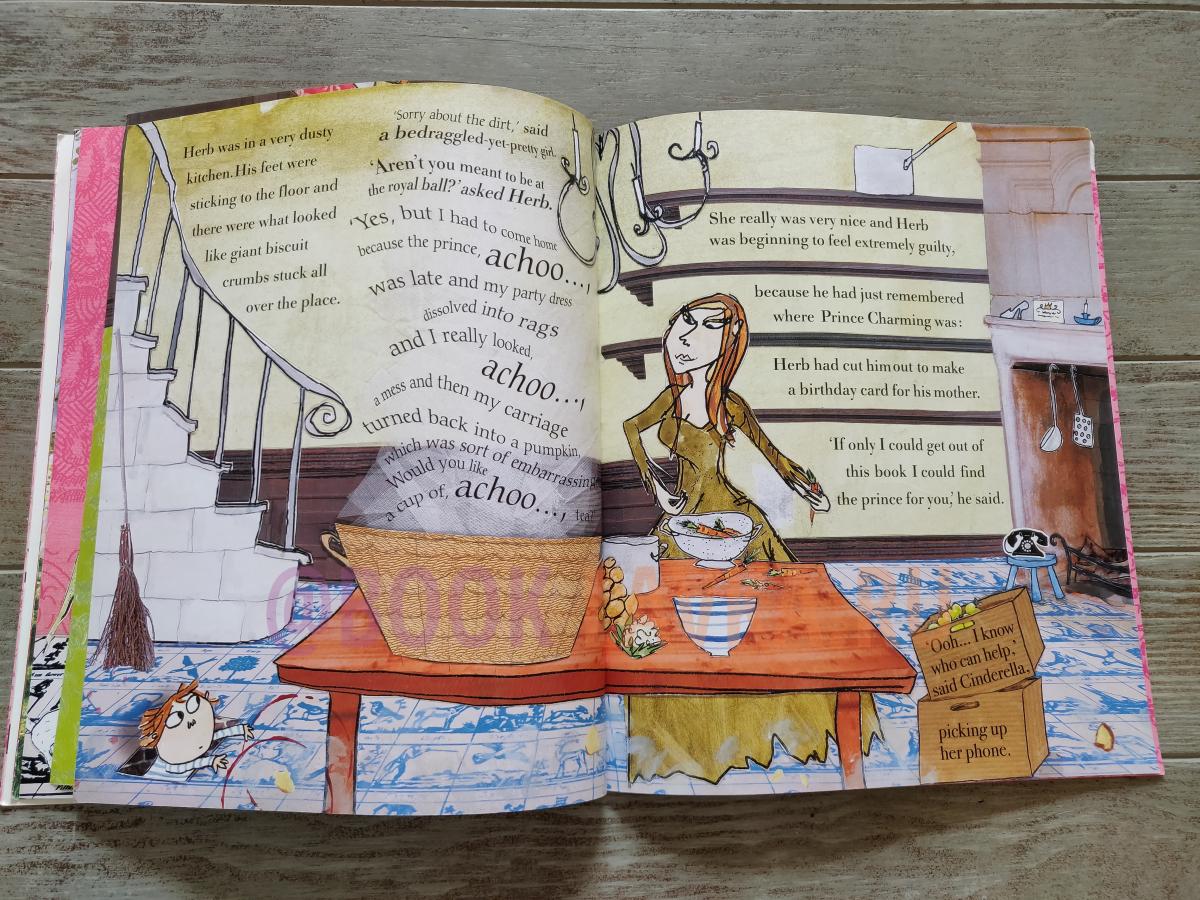 Herb was in a very dusty
kitchen. His feet were
sticking to the floor and
there were what looked
like giant biscuit
crumbs stuck all
over the place.
'Sorry about the dirt,' said
a bedraggled-yet-pretty girl.
'Aren't you meant to be at
the royal ball?' asked Herb.
'Yes, but I had to come home
because the prince, achoo...,
was late and my party dress
dissolved into rags
and I really looked,
achoo...,
a mess and then my carriage
turned back into a pumpkin,
which was sort of embarrassing.
Would you like
a cup of, achoo..., tea?'
She really was very nice and Herb
was beginning to feel extremely guilty,
because he had just remembered
where Prince Charming was:
Herb had cut him out to make
a birthday card for his mother.
'If only I could get out of
this book I could find
the prince for you,' he said.
'Ooh... I know
who can help,'
said Cinderella,
picking up
her phone.
@BOOK